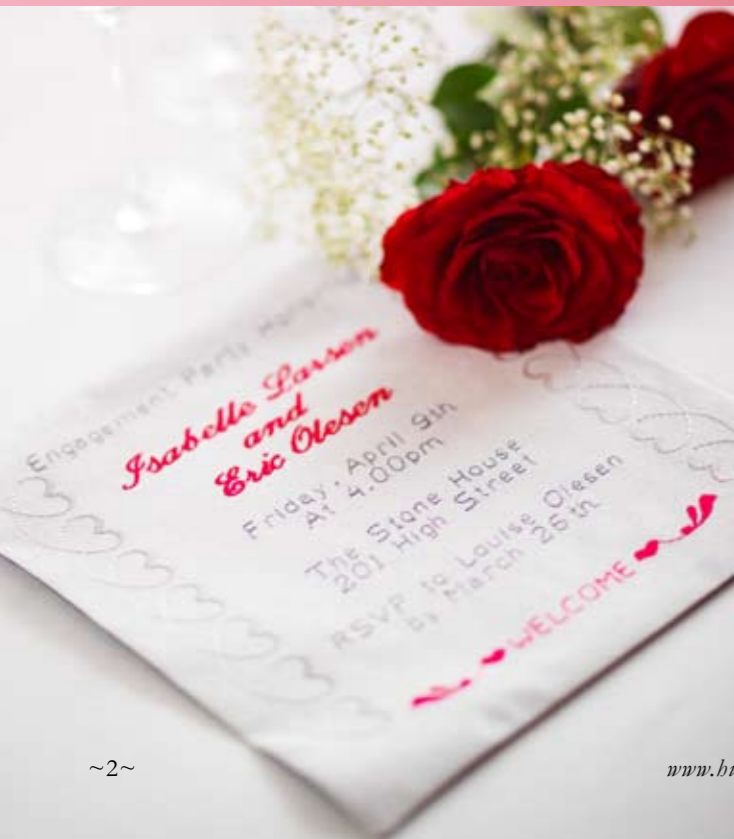 Engagement Party
Isabelle Larsen
and
Eric Olesen
Friday, April 9th
At 4.00pm
The Stone House
201 High Street
RSVP to Louise Olesen
by March 26th
WELCOME
~2~